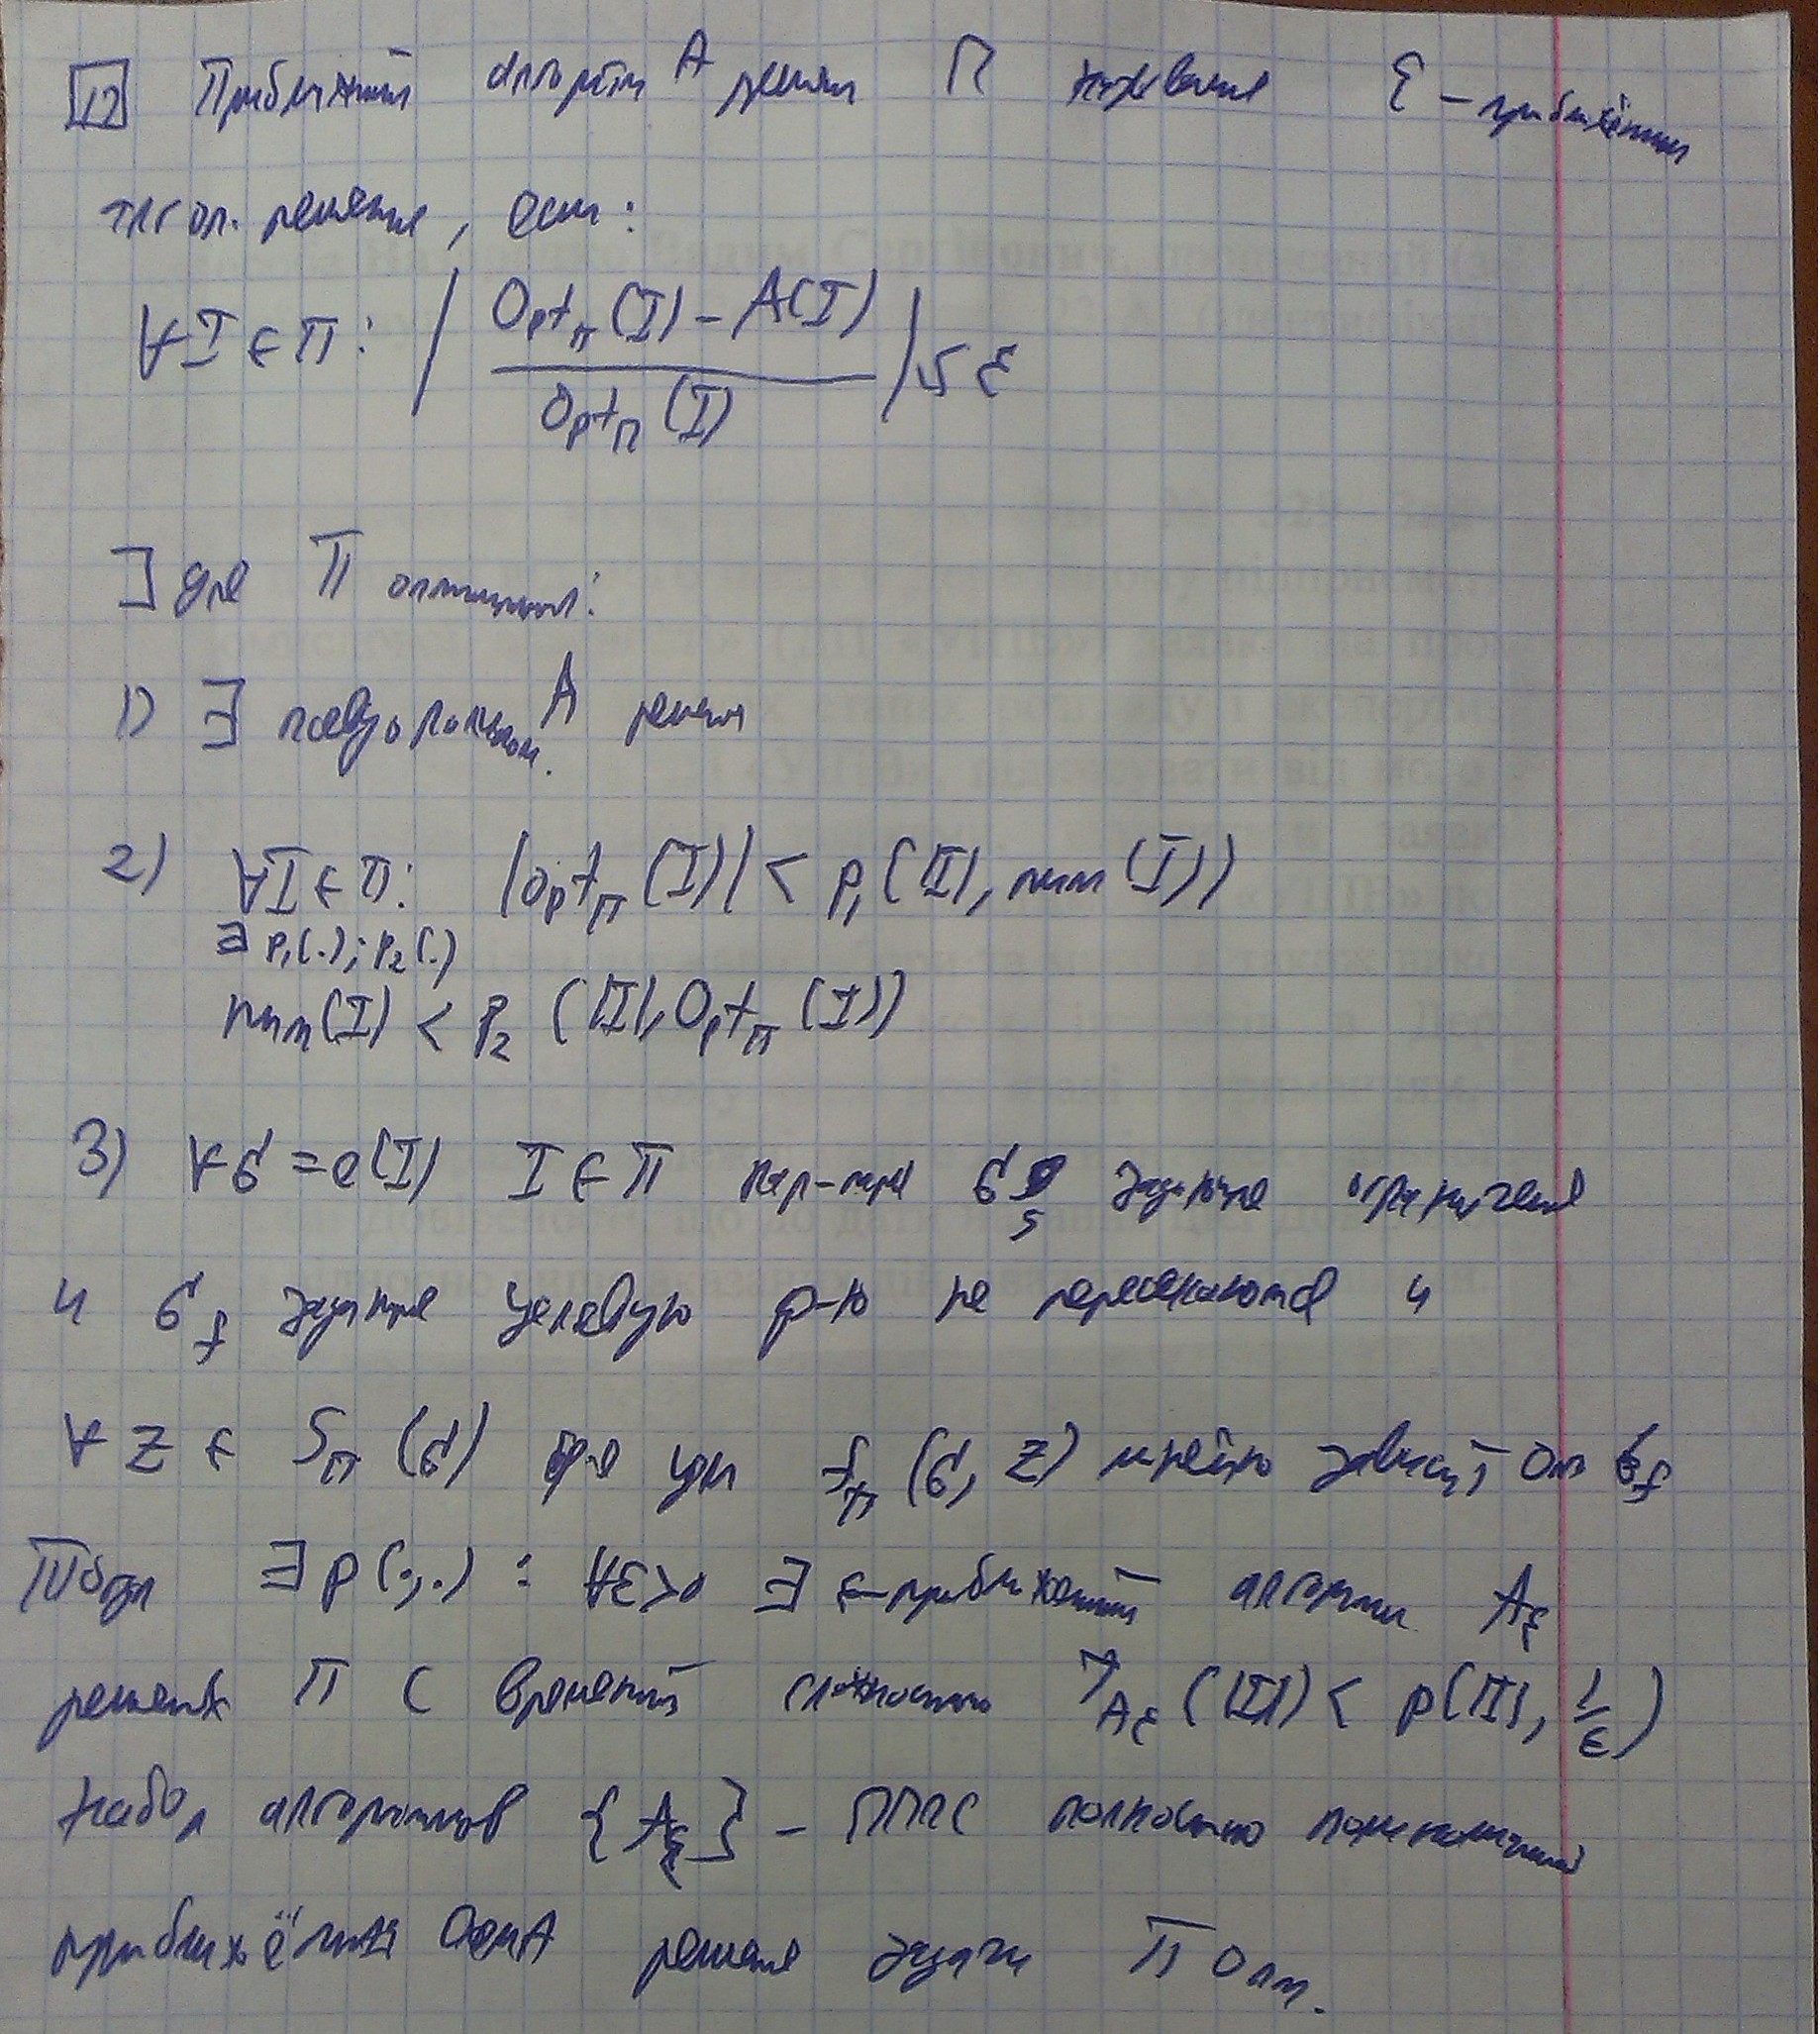 12 Приближённый алгоритм A решения П называется ε – приближённым
алгор. решения, если:
∀I ∈ П: | (Opt_П(I) – A(I)) / Opt_П(I) | ≤ ε
∃ для П оптимизации:
1) ∃ псевдополином. A решения
2) ∀I ∈ П: |Opt_П(I)| < p₁(|I|, num(I))
∃ p₁(.); p₂(.)
num(I) < p₂ (|I|, Opt_П(I))
3) ∀σ = e(I) I ∈ П пар-тры σ_s задающие ограничения
и σ_f задающие целевую ф-ю не пересекаются и
∀ z ∈ S_П(σ) ф-я цели f_П(σ, z) линейно зависит от σ_f
Тогда ∃ p(.,.) : ∀ε>0 ∃ ε-приближённый алгоритм A_ε
решения П с временной сложностью T_{A_ε}(|I|) < p(|I|, 1/ε)
Набор алгоритмов {A_ε} – ППС полностью полиномиальной
приближённая решения задачи П опт.